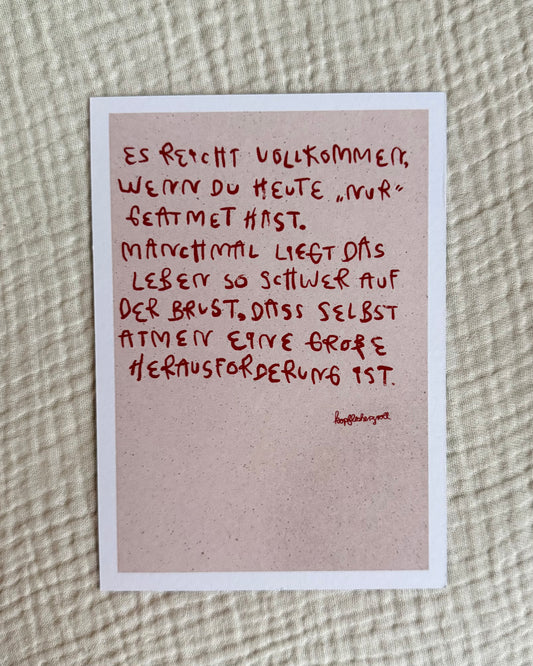 ES REICHT VOLLKOMMEN,
WENN DU HEUTE „NUR“
GEATMET HAST.
MANCHMAL LIEGT DAS
LEBEN SO SCHWER AUF
DER BRUST, DASS SELBST
ATMEN EINE GROßE
HERAUSFORDERUNG IST.